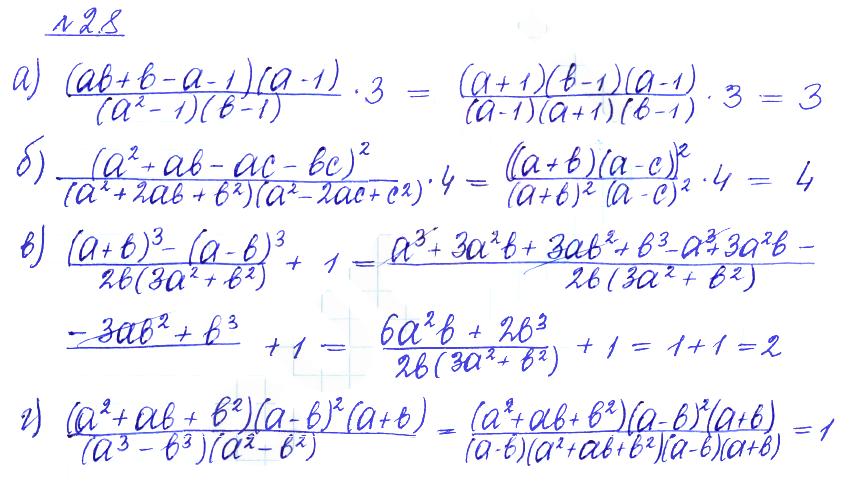 № 2.8
а) (ab+b-a-1)(a-1) / (a²-1)(b-1) · 3 = (a+1)(b-1)(a-1) / (a-1)(a+1)(b-1) · 3 = 3
б) (a²+ab-ac-bc)² / (a²+2ab+b²)(a²-2ac+c²) · 4 = ((a+b)(a-c))² / (a+b)² (a-c)² · 4 = 4
в) (a+b)³-(a-b)³ / 2b(3a²+b²) + 1 = a³+3a²b+3ab²+b³-a³+3a²b- / 2b(3a²+b²)
-3ab²+b³ / + 1 = 6a²b+2b³ / 2b(3a²+b²) + 1 = 1+1 = 2
г) (a²+ab+b²)(a-b)²(a+b) / (a³-b³)(a²-b²) = (a²+ab+b²)(a-b)²(a+b) / (a-b)(a²+ab+b²)(a-b)(a+b) = 1